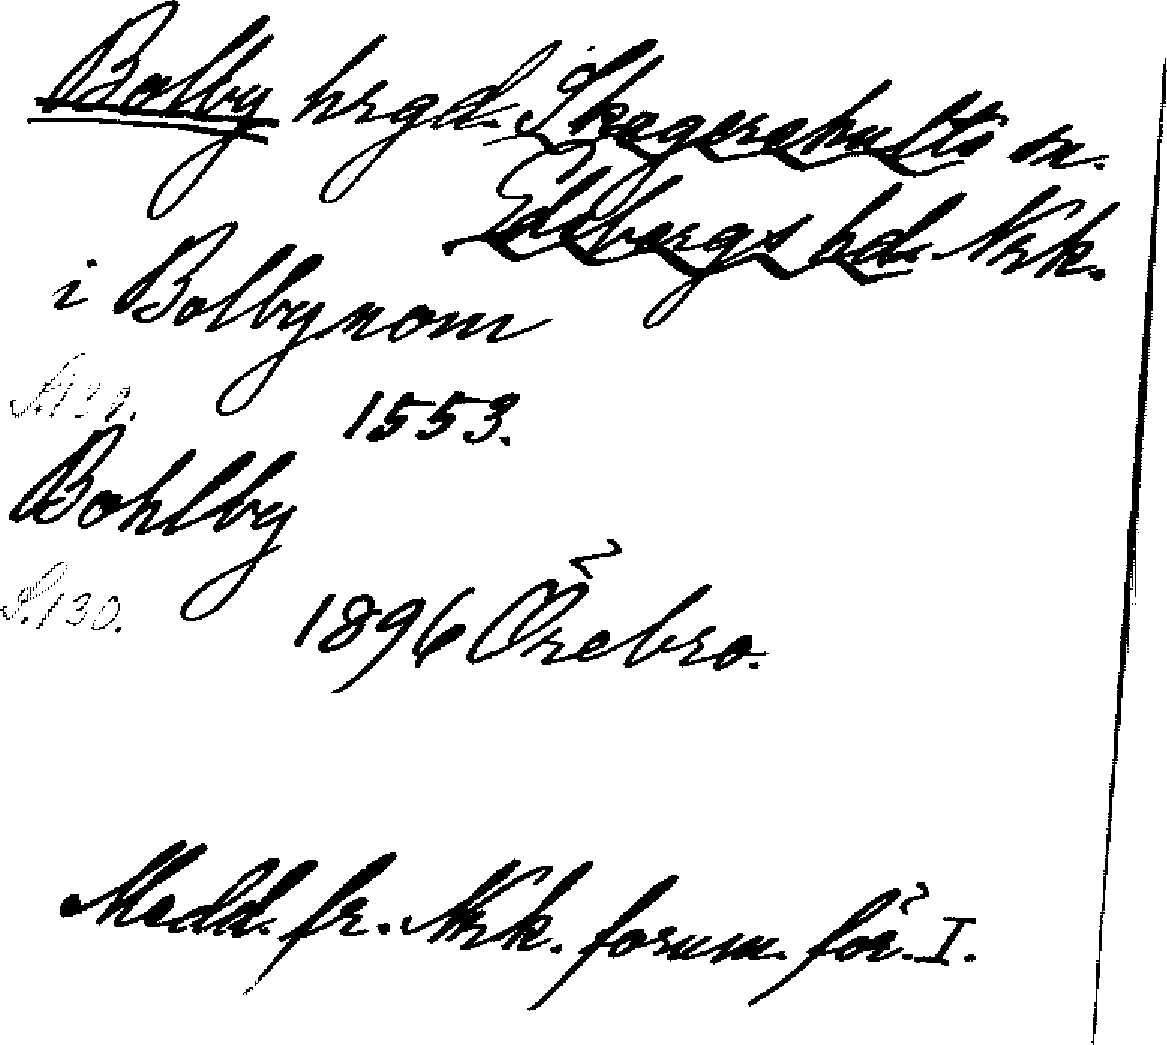 Bolby hrgd. Skagershults sn.
Edsbergs hd. Nrk.
i Bolbynom
S.130.
1553.
Bohlby
S.130.
1896 Örebro.
Medd. fr. Nrk. fornm. för. I.